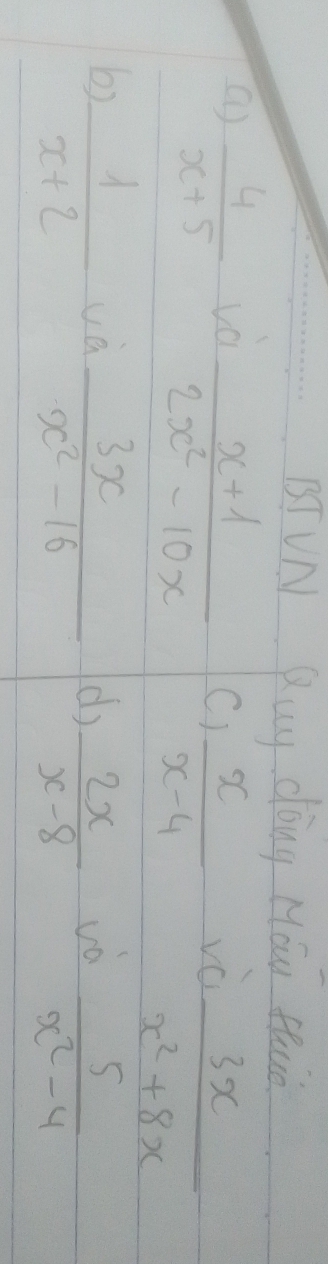 BTVN Quy đồng Mẫu thức
a) 4/(x+5) và (x+1)/(2x² - 10x)
c) x/(x-4) và 3x/(x²+8x)
b) 1/(x+2) và 3x/(x² - 16)
d) 2x/(x-8) và 5/(x²-4)